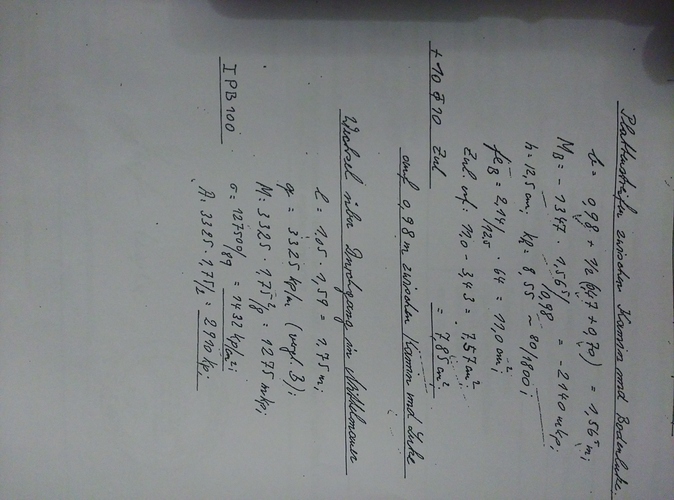 Plattenstreifen zwischen Kamin und Bodenluke.
b = 0,98 + 1/2 (0,47 + 0,70) = 1,56⁵ m;
M_B = - 1347 · 1,56⁵/0,98 = - 2140 mkp;
h = 12,5 cm; kz = 8,55 ~ 80/1800;
fe_B = 2,14/125 · 64 = 11,0 cm²;
Zul. erf.: 11,0 - 3,43 = 7,57 cm²
+ 10 φ 10 Zul = 7,85 cm²
auf 0,98 m zwischen Kamin und Luke
Wechsel über Durchgang in Mittelmauer
l = 1,05 · 1,59 = 1,75 m;
q = 3325 kp/m (vergl. 3);
M = 3325 · 1,75²/8 = 1275 mkp;
IPB 100
σ = 127500/89 = 1432 kp/cm²;
A = 3325 · 1,75/2 = 2910 kp;